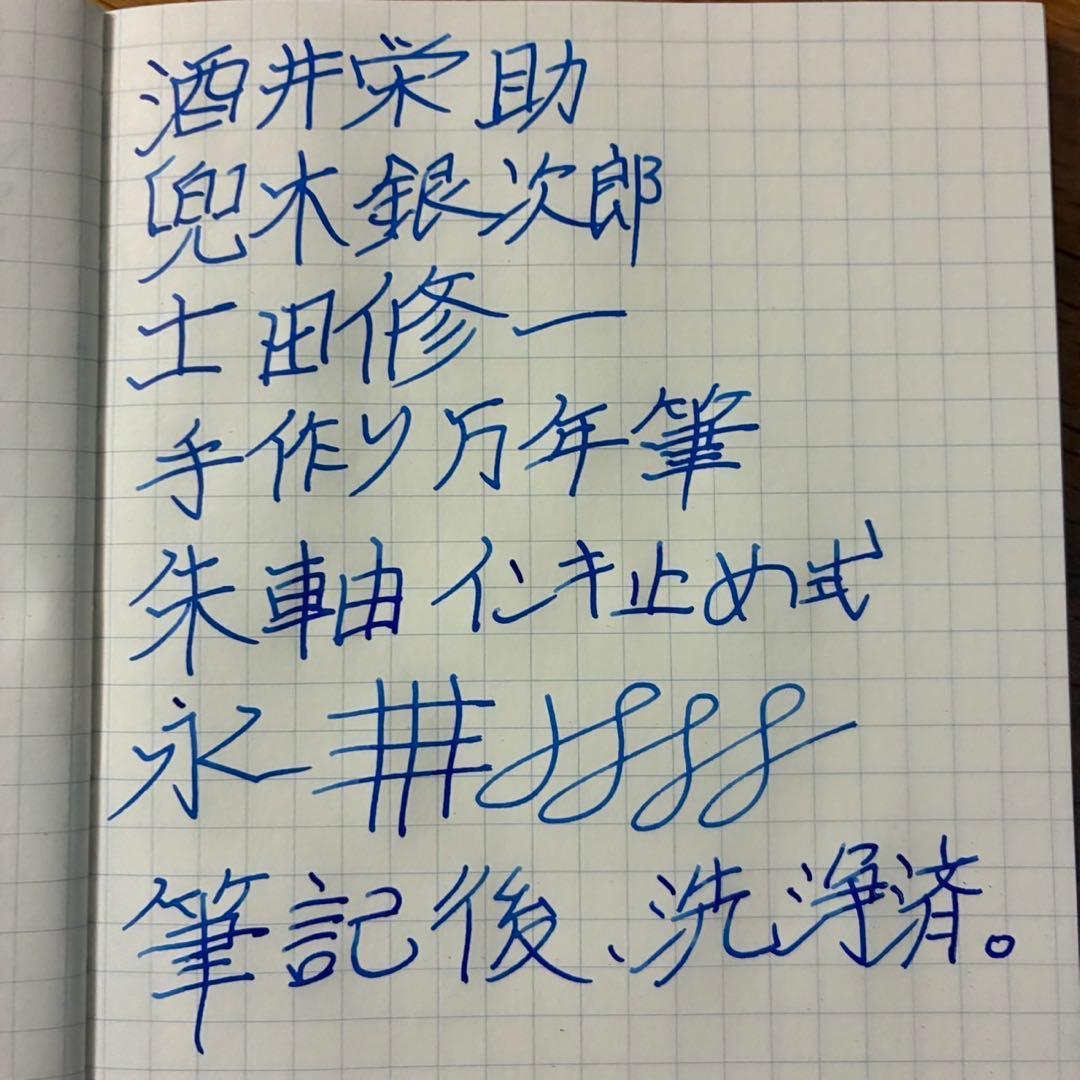 酒井栄助
兜木銀次郎
土田修一
手作り万年筆
朱軸 インキ止め式
永
筆記後、洗浄済。